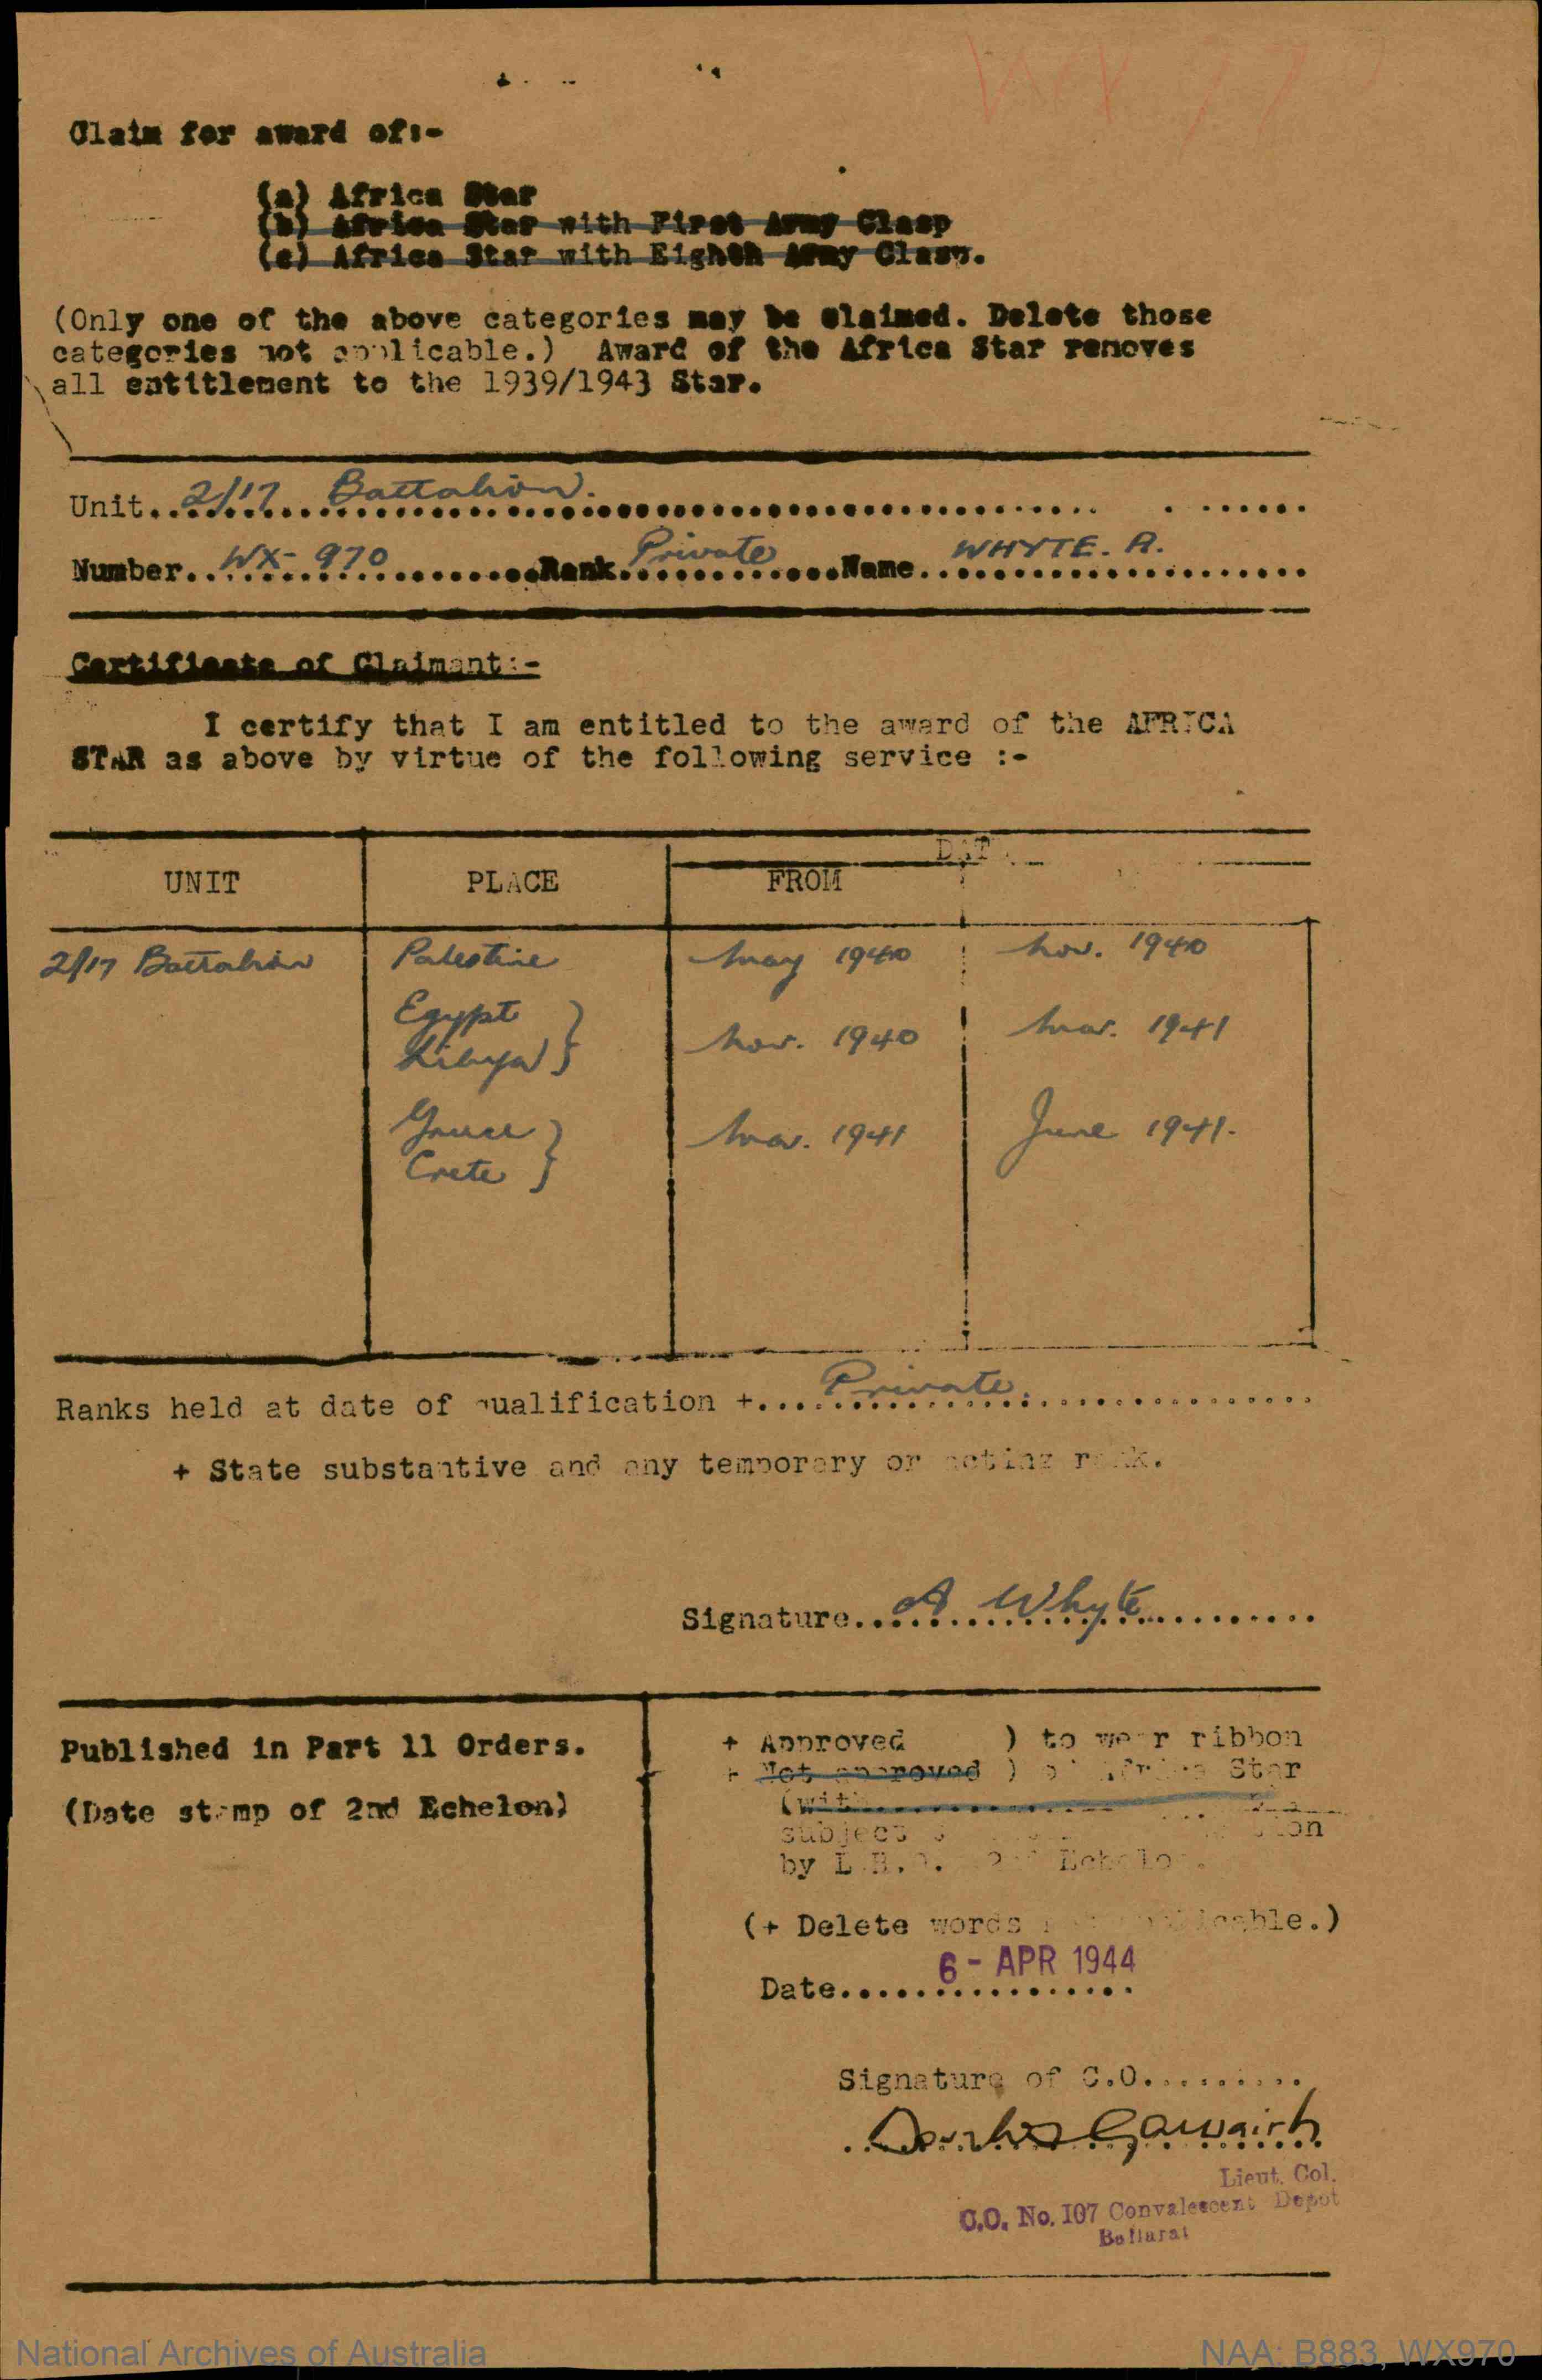 Claim for award of:-
(a) Africa Star
(b) Africa Star with First Army Clasp
(c) Africa Star with Eighth Army Clasp.
(Only one of the above categories may be claimed. Delete those
categories not applicable.) Award of the Africa Star removes
all entitlement to the 1939/1943 Star.
Unit 2/17 Battalion.
Number WX- 970 Rank Private Name WHYTE. A.
Certificate of Claimant:-
I certify that I am entitled to the award of the AFRICA
STAR as above by virtue of the following service :-
UNIT PLACE FROM
2/17 Battalion Palestine May 1940 Nov. 1940
Egypt } Nov. 1940 Mar. 1941
Libya }
Greece } Mar. 1941 June 1941.
Crete }
Ranks held at date of qualification + Private.
+ State substantive and any temporary or acting rank.
Signature A Whyte
Published in Part 11 Orders.
(Date stamp of 2nd Echelon)
+ Approved ) to wear ribbon
+ Not approved ) of Africa Star
(with
subject
by L.H.Q. 2nd Echelon.
(+ Delete words not applicable.)
Date 6 - APR 1944
Signature of C.O.
Lieut. Col.
C.O. No. 107 Convalescent Depot
Ballarat
National Archives of Australia
NAA: B883, WX970